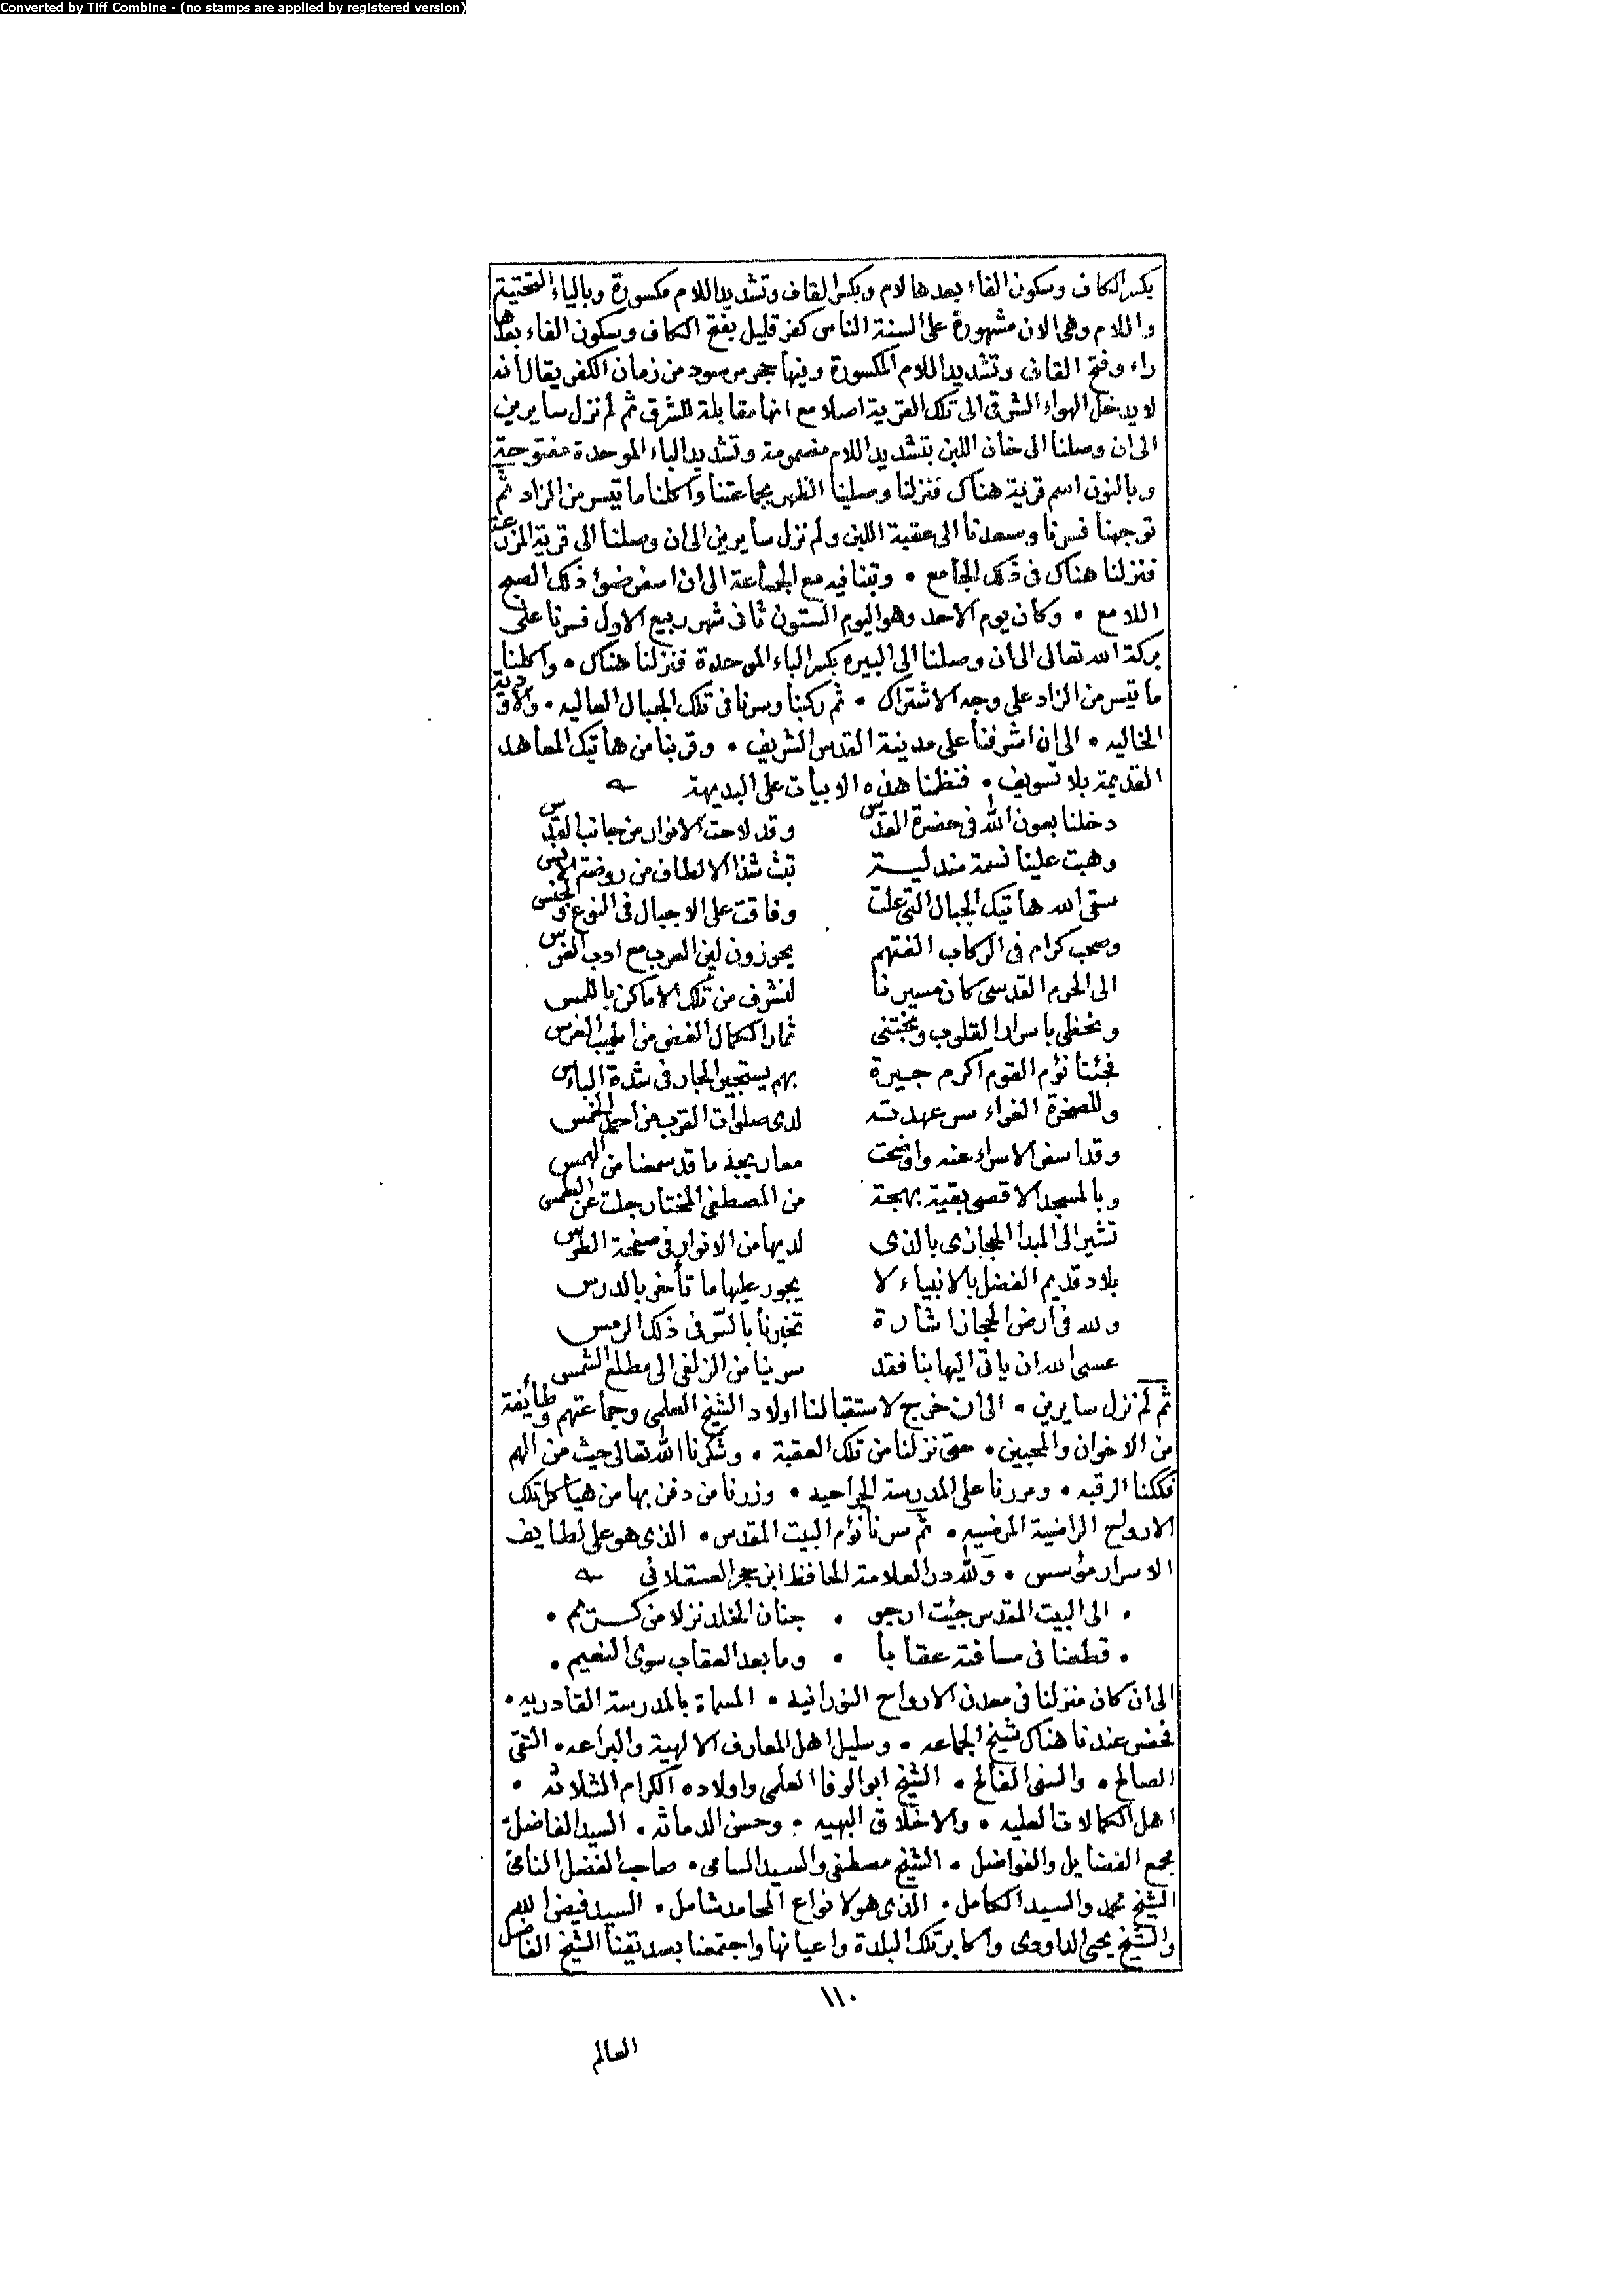 Converted by Tiff Combine - (no stamps are applied by registered version)
بكسر الكاف وسكون الفاء بعدها لام وبكسر القاف وتشديد اللام مكسورة وبالياء التحتية
واللام وهى الان مشهورة على السنة الناس كفر قليل بفتح الكاف وسكون الفاء بعدها
راء وفتح القاف وتشديد اللام المكسورة وفيها حجر مرصود من زمان الكفر يقال أنه
لا يدخل الهواء الشرقى الى تلك القرية اصلا مع انها مقابلة للشرق ثم لم نزل سايرين
الى ان وصلنا الى خان اللبن بتشديد اللام مضمومة وتشديد الباء الموحدة مفتوحة
وبالنون اسم قرية هناك فنزلنا وصلينا الظهر بجماعتنا وأكلنا ما تيسر من الزاد ثم
توجهنا فسرنا وصعدنا الى عقبة اللبن ولم نزل سايرين الى ان وصلنا الى قرية المزرعة
فنزلنا هناك فى ذلك الجامع • وبتنا فيه مع الجماعة الى ان اسفر ضوء ذلك الصبح
اللامع • وكان يوم الاحد وهو اليوم الستون ثانى شهر ربيع الاول فسرنا على
بركة الله تعالى الى ان وصلنا الى البيره بكسر الباء الموحدة فنزلنا هناك • وأكلنا
ما تيسر من الزاد على وجه الاشتراك • ثم ركبنا وسرنا فى تلك الجبال العاليه • والاودية
الخاليه • الى ان اشرفنا على مدينة القدس الشريف • وقربنا من هاتيك المعاهد
القديمة بلا تسويف • فنظمنا هذه الابيات على البديهة
دخلنا بعون الله فى حضرة القدس وقد لاحت الانوار من جانب القدس
وهبت علينا نسمة مندلية تبث شذا الالطاف من روضة الانس
سقى الله هاتيك الجبال التى علت وفاقت على الاجبال فى النوع والجنس
وصحب كرام فى الركاب الفتهم يحوزون لين العرب مع ادب الفرس
الى الحرم القدسى كان مسيرنا لنشرف من تلك الاماكن باللمس
ونحظى باسرار القلوب ونجتنى ثمار الكمال الغض من اطيب الغرس
فجئنا نؤم القوم اكرم جيرة بهم يستجير الجار فى شدة الباس
وللصخرة الغراء سر عهدته لدى صلوات القرب من اجمل الخمس
وقد اسفر الاسراء عنه واوضحت معاريجه ما قد سمعنا من الهمس
وبالمسجد الاقصى بقية بهجة من المصطفى المختار جلت عن الطمس
تشير الى المبدا الحجازى بالذى لديها من الانوار فى صفحة الطرس
بلاد قديم الفضل بالانبياء لا يجور عليها ما تأخر بالدرس
ولله فى ارض الحجاز اشارة تخبرنا بالسر فى ذلك الرمس
عسى الله ان ياتى اليها بنا فقد سرينا من الزلفى الى مطلع الشمس
ثم لم نزل سايرين • الى ان خرج لاستقبالنا اولاد الشيخ العلمى وجماعتهم وطائفة
من الاخوان والمحبين • حتى نزلنا من تلك العقبة • وشكرنا الله تعالى حيث من الهم
فككنا الرقبه • ومررنا على المدرسة الجراحيه • وزرنا من دفن بها من هياكل تلك
الارواح الراضية المرضيه • ثم سرنا نؤم البيت المقدس • الذى هو على لطايف
الاسرار مؤسس • ولله در العلامة الحافظ ابن حجر العسقلانى
• الى البيت المقدس جئت ارجو • جنان الخلد نزلا من كريم •
• قطعنا فى مسافته عقابا • وما بعد العقاب سوى النعيم •
الى ان كان منزلنا فى معدن الارواح النورانيه • المسماة بالمدرسة القادريه •
فحضر عندنا هناك شيخ الجماعه • وسليل اهل المعارف الالهية والبراعه • التقى
الصالح • والسنى الفالح • الشيخ ابو الوفا العلمى واولاده الكرام الثلاثه •
اهل الكمالات العليه • والاخلاق البهيه • وحسن الدماثه • السيد الفاضل
مجمع الفضايل والفواضل • الشيخ مصطفى والسيد السامى • صاحب الفضل النامى
الشيخ محمد والسيد الكامل • الذى هو لانواع المحامد شامل • السيد فيض الله
والشيخ يحيى الداودى واكابر تلك البلدة واعيانها واجتمعنا بصديقنا الشيخ الفاضل
١١٠
العالم